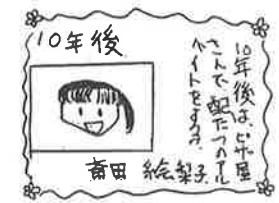 10年後
10年後は、ピザ屋
さんで、配たつのアル
バイトをする
斎田 絵梨子